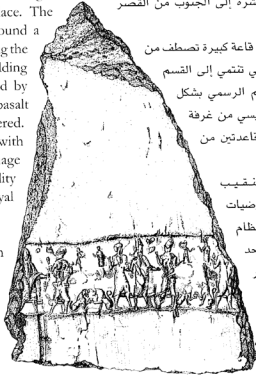 ace. The
ound a
g the
lding
d by
basalt
ered.
with
nage
lity
yal
شرة إلى الجنوب من القصر
قاعة كبيرة تصطف من
ي تنتمي إلى القسم
م الرسمي بشكل
يسي من غرفة
قاعدتين من
نقيب
ضيات
ظام
حد